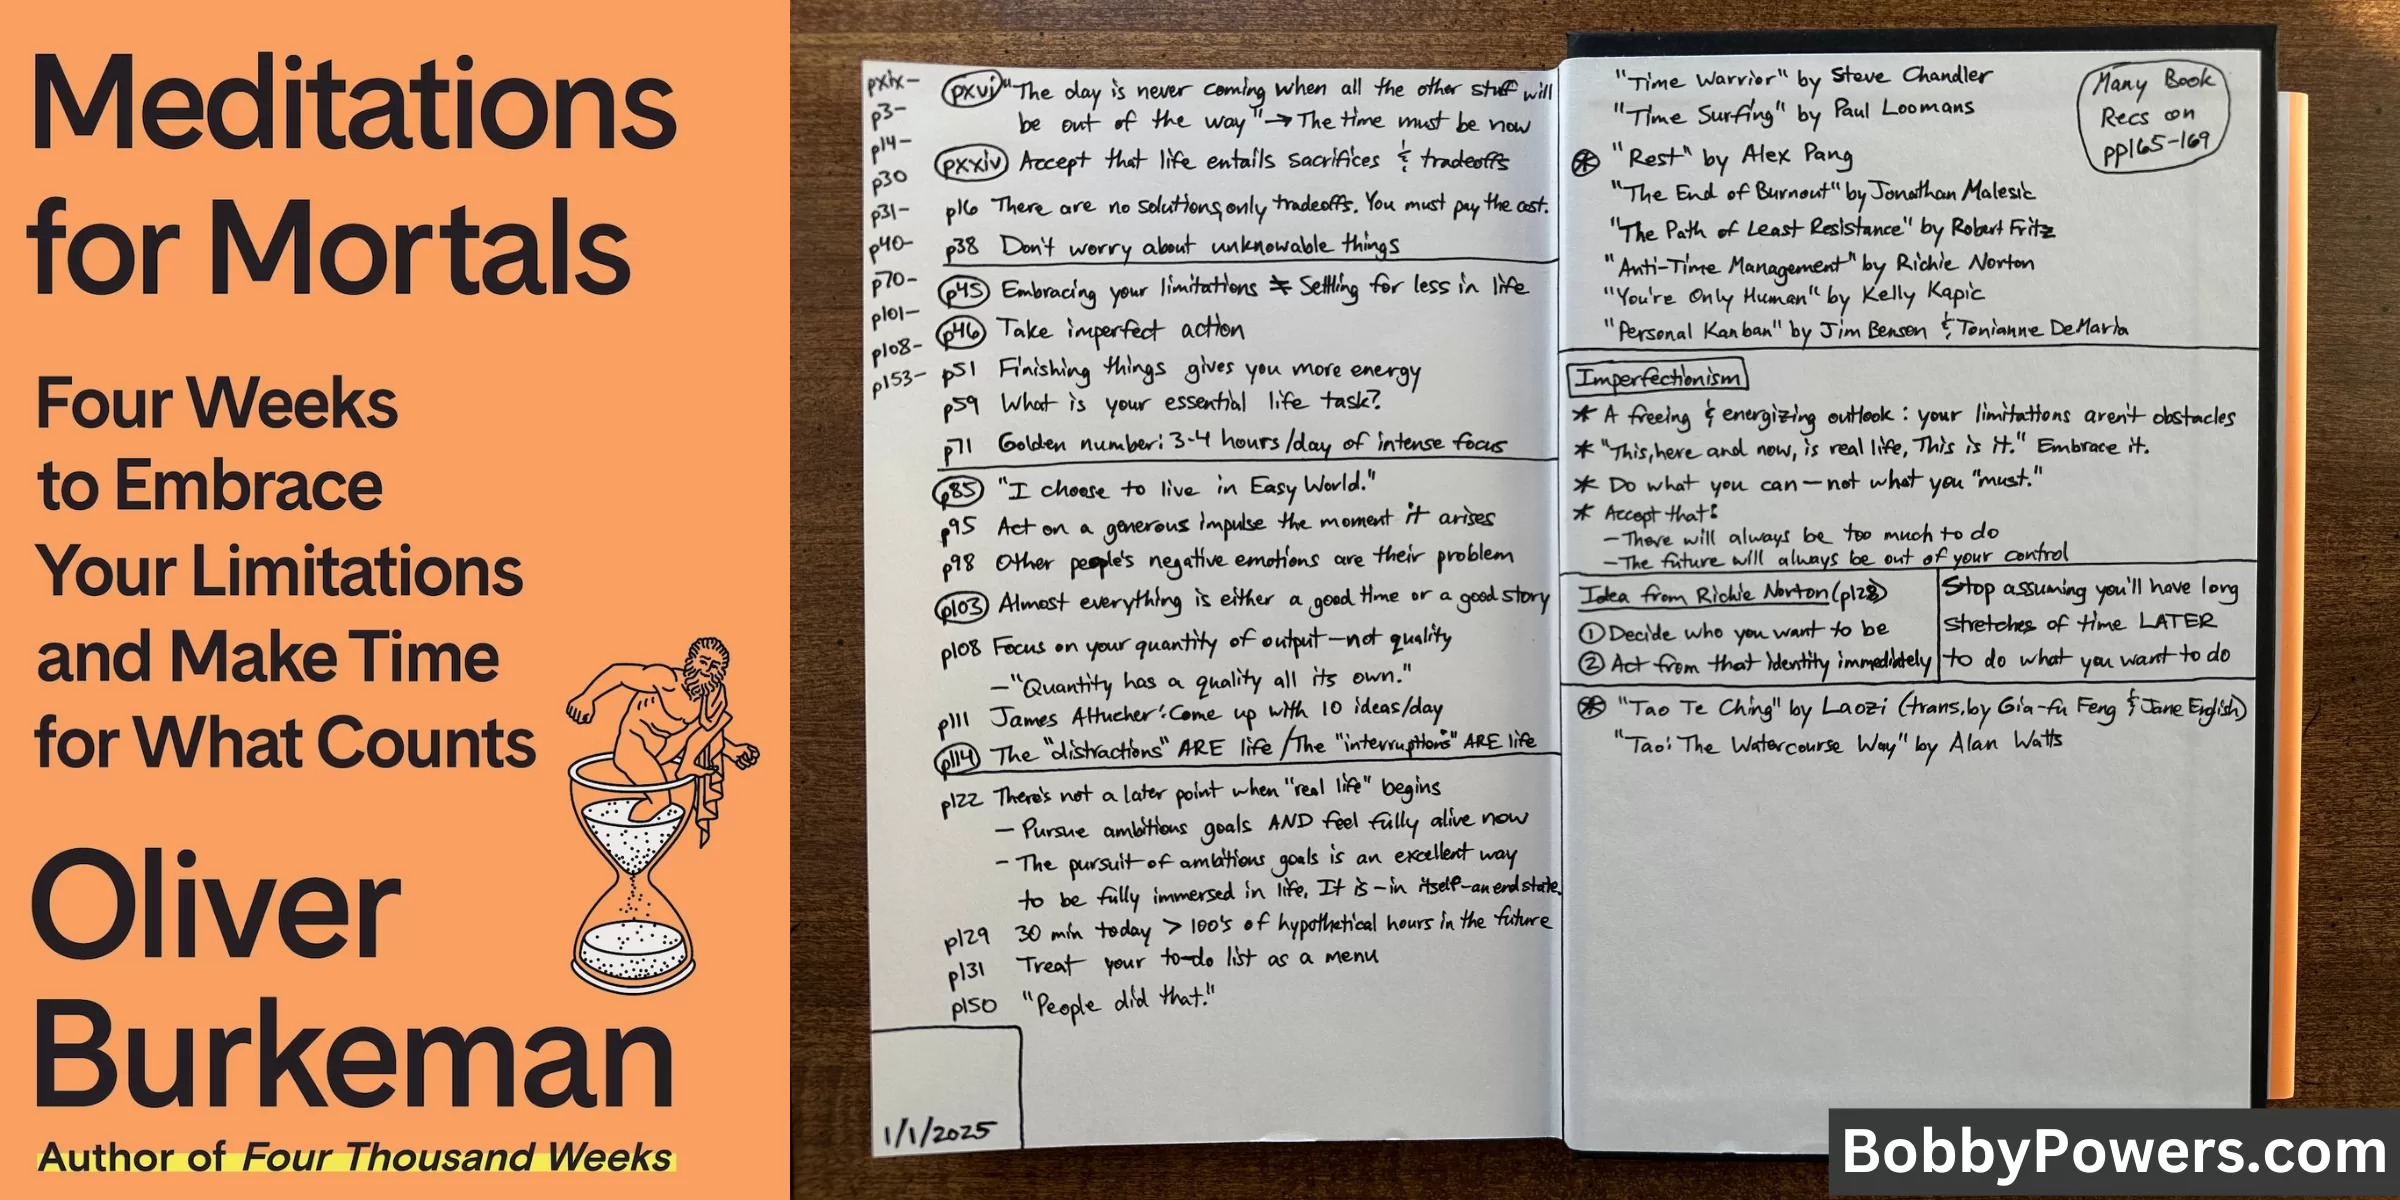 Meditations
for Mortals
Four Weeks
to Embrace
Your Limitations
and Make Time
for What Counts
Oliver
Burkeman
Author of Four Thousand Weeks
pxix-
p3-
p14-
p30
p31-
p40-
p70-
p101-
p108-
p153-
pxvi "The day is never coming when all the other stuff will
be out of the way" → The time must be now
pxxiv Accept that life entails sacrifices & tradeoffs
p16 There are no solutions, only tradeoffs. You must pay the cost.
p38 Don't worry about unknowable things
p45 Embracing your limitations ≠ Settling for less in life
p46 Take imperfect action
p51 Finishing things gives you more energy
p59 What is your essential life task?
p71 Golden number: 3-4 hours/day of intense focus
p85 "I choose to live in Easy World."
p95 Act on a generous impulse the moment it arises
p98 Other people's negative emotions are their problem
p103 Almost everything is either a good time or a good story
p108 Focus on your quantity of output—not quality
—"Quantity has a quality all its own."
p111 James Altucher: Come up with 10 ideas/day
p114 The "distractions" ARE life/The "interruptions" ARE life
p122 There's not a later point when "real life" begins
— Pursue ambitious goals AND feel fully alive now
— The pursuit of ambitious goals is an excellent way
to be fully immersed in life. It is—in itself—an end state.
p129 30 min today > 100's of hypothetical hours in the future
p131 Treat your to-do list as a menu
p150 "People did that."
1/1/2025
"Time Warrior" by Steve Chandler
"Time Surfing" by Paul Loomans
* "Rest" by Alex Pang
"The End of Burnout" by Jonathan Malesic
"The Path of Least Resistance" by Robert Fritz
"Anti-Time Management" by Richie Norton
"You're Only Human" by Kelly Kapic
"Personal Kanban" by Jim Benson & Tonianne DeMaria
Many Book
Recs on
pp165-169
Imperfectionism
* A freeing & energizing outlook: your limitations aren't obstacles
* "This, here and now, is real life. This is it." Embrace it.
* Do what you can—not what you "must."
* Accept that:
—There will always be too much to do
—The future will always be out of your control
Idea from Richie Norton (p128)
① Decide who you want to be
② Act from that identity immediately
Stop assuming you'll have long
stretches of time LATER
to do what you want to do
* "Tao Te Ching" by Laozi (trans. by Gia-fu Feng & Jane English)
"Tao: The Watercourse Way" by Alan Watts
BobbyPowers.com